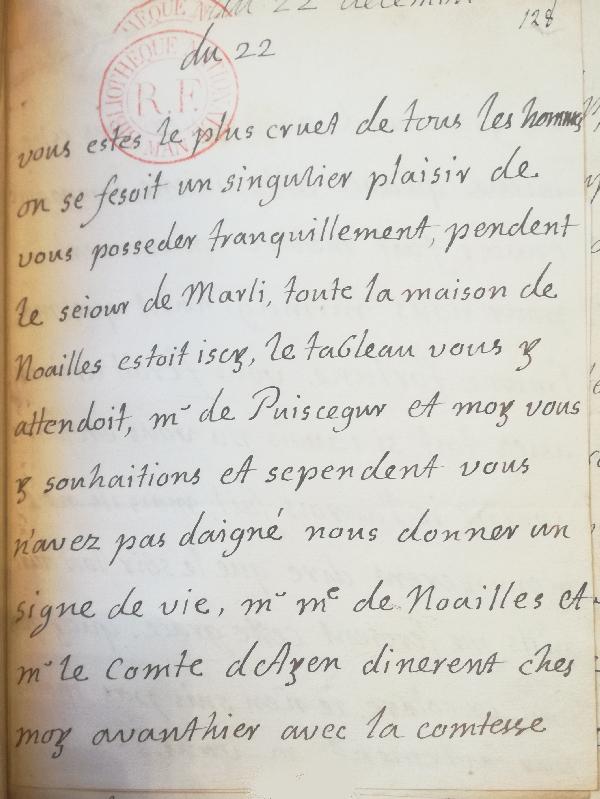 du 22 decembre
128
BIBLIOTHEQUE NATIONALE
R.F.
MAN
du 22
vous estes le plus cruel de tous les hommes
on se fesoit un singulier plaisir de
vous posseder tranquillement, pendent
le seiour de Marli, toute la maison de
Noailles estoit iscy, le tableau vous y
attendoit, mr de Puiscegur et moy vous
y souhaitions et sependent vous
n'avez pas daigné nous donner un
signe de vie, mr me de Noailles et
mr le Comte dAyen dinerent ches
moy avanthier avec la comtesse